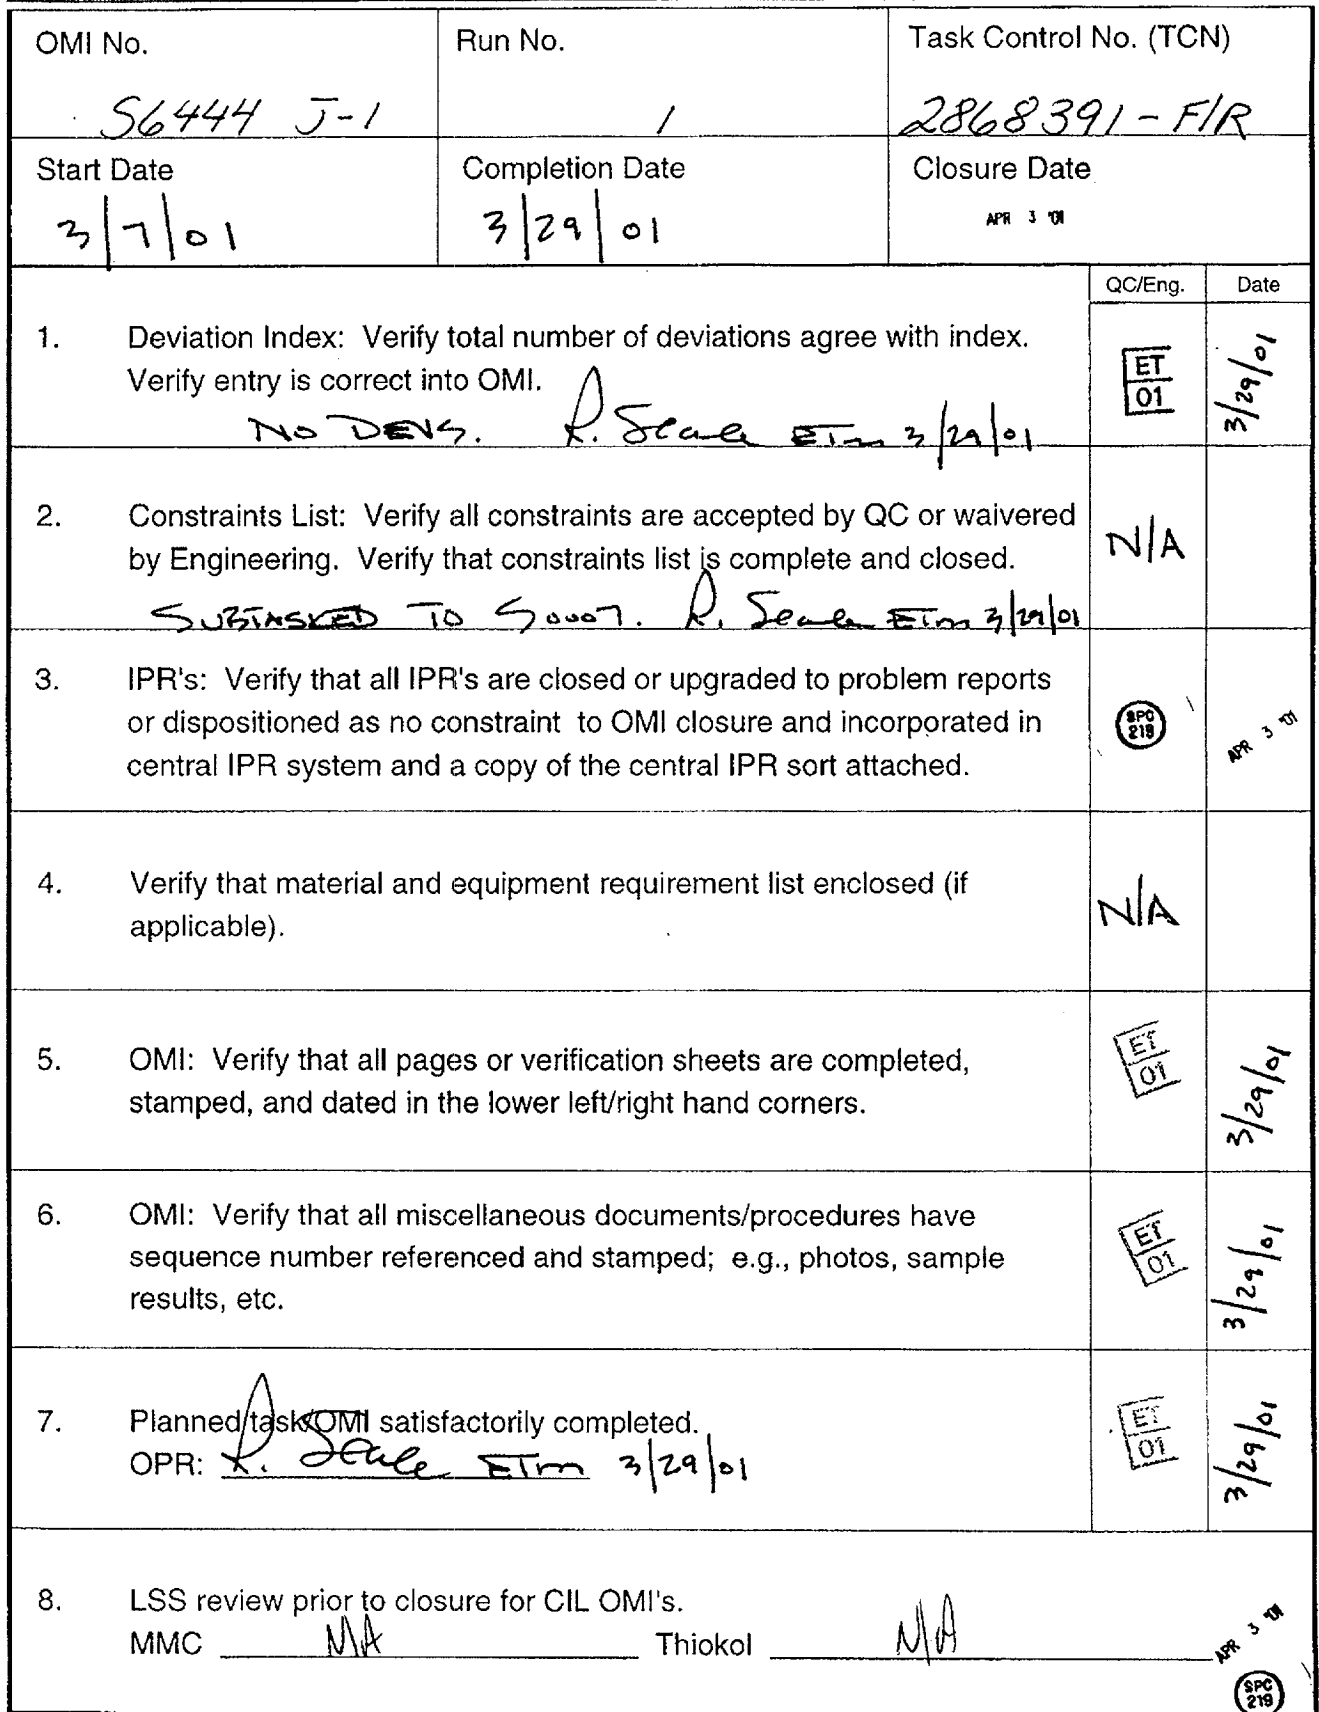 OMI No.
Run No.
Task Control No. (TCN)
S6444 J-1
1
2868391-F/R
Start Date
Completion Date
Closure Date
3/7/01
3/29/01
APR 3 '01
QC/Eng.
Date
1. Deviation Index: Verify total number of deviations agree with index.
Verify entry is correct into OMI.
NO DEVS. R. Seale ETm 3/29/01
ET
01
3/29/01
2. Constraints List: Verify all constraints are accepted by QC or waivered
by Engineering. Verify that constraints list is complete and closed.
SUBTASKED TO S0007. R. Seale ETm 3/29/01
N/A
3. IPR's: Verify that all IPR's are closed or upgraded to problem reports
or dispositioned as no constraint to OMI closure and incorporated in
central IPR system and a copy of the central IPR sort attached.
SPC
219
APR 3 '01
4. Verify that material and equipment requirement list enclosed (if
applicable).
N/A
5. OMI: Verify that all pages or verification sheets are completed,
stamped, and dated in the lower left/right hand corners.
ET
01
3/29/01
6. OMI: Verify that all miscellaneous documents/procedures have
sequence number referenced and stamped; e.g., photos, sample
results, etc.
ET
01
3/29/01
7. Planned task/OMI satisfactorily completed.
OPR: R. Seale ETm 3/29/01
ET
01
3/29/01
8. LSS review prior to closure for CIL OMI's.
MMC N/A Thiokol N/A
APR 3 '01
SPC
219